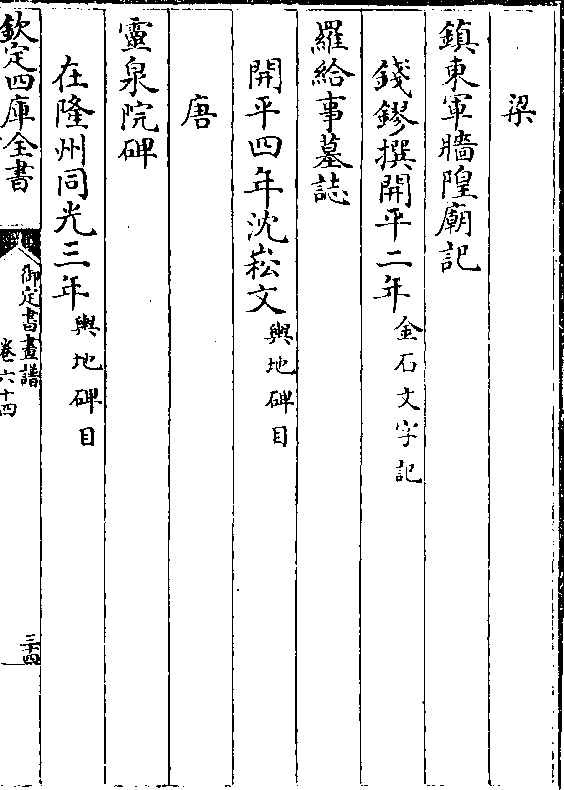 梁
鎮東軍牆隍廟記
錢鏐撰開平二年金石文字記
羅給事墓誌
開平四年沈崧文輿地碑目
唐
靈泉院碑
在隆州同光三年輿地碑目
欽定四庫全書
御定書畫譜
卷六十四
三十四